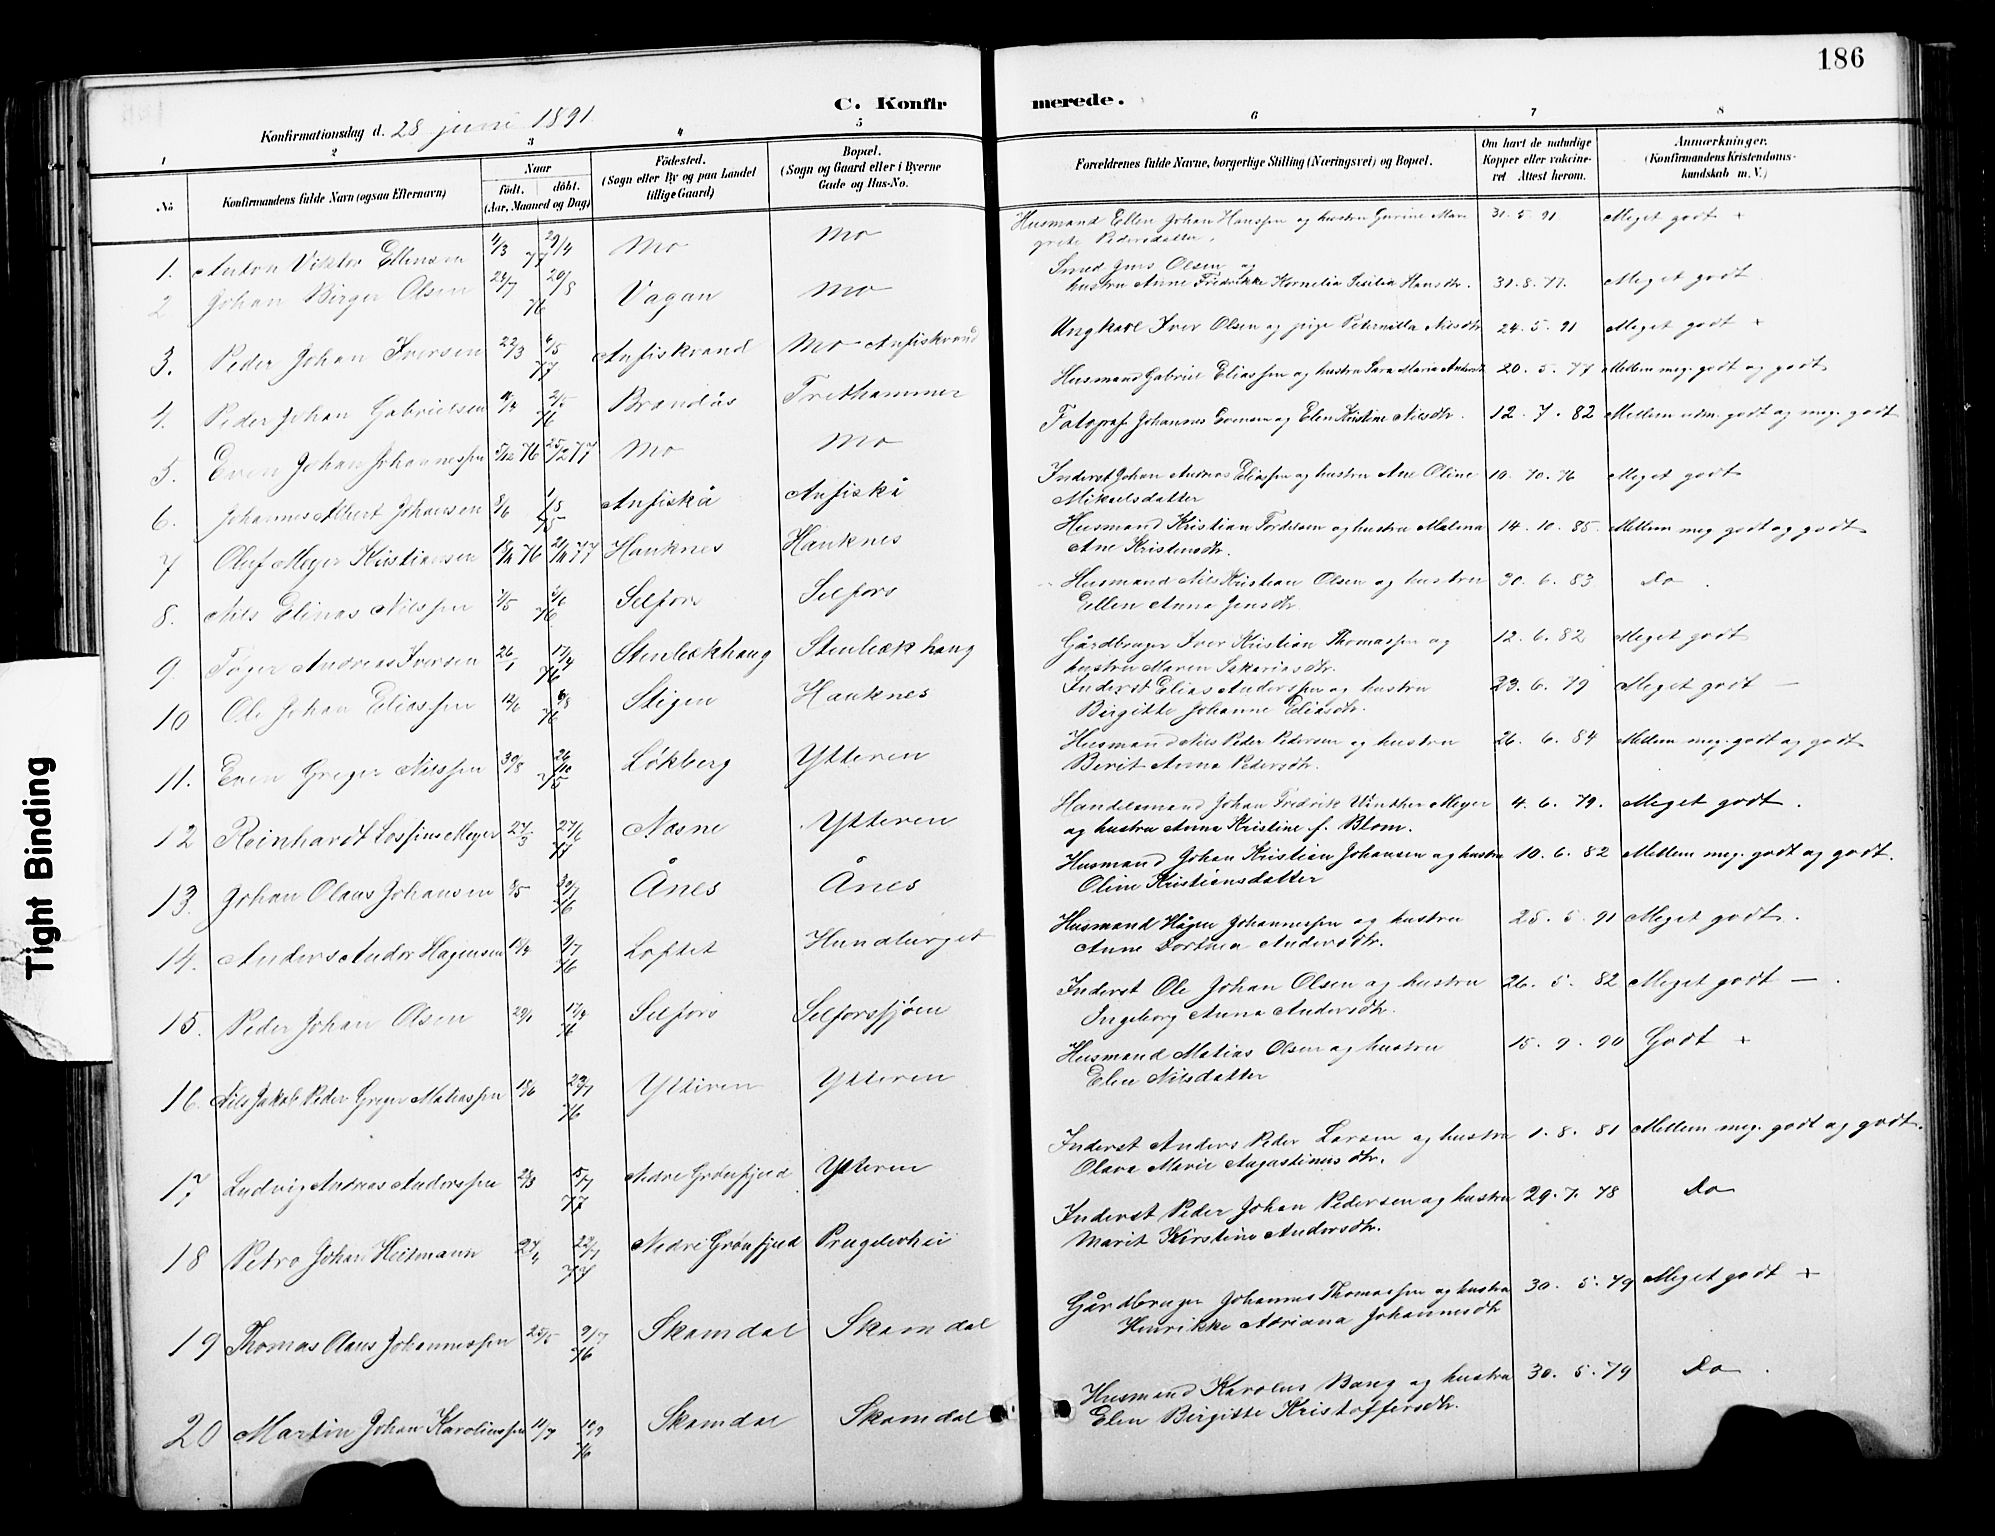 186
C. Konfirmerede.
Konfirmationsdag d. 28 juni 1891.
1 2 3 4 5 6 7 8
No
Konfirmandens fulde Navn (ogsaa Efternavn)
Naar
födt. döbt.
(Aar, Maaned og Dag)
Födested.
(Sogn eller By og paa Landet
tillige Gaard)
Bopæl.
(Sogn og Gaard eller i Byerne
Gade og Hus-No.
Forældrenes fulde Navne, borgerlige Stilling (Næringsvei) og Bopæl.
Om havt de naturlige
Kopper eller vakcine-
ret Attest herom.
Anmærkninger.
(Konfirmandens Kristendoms-
kundskab m. V.)
1. Anton Viktor Ellensen 29/4 77 Mo Mo Husmand Ellen Johan Hanssen og hustru Gurine Mar 31. 5. 91 Meget godt +
grete Pedersdatter.
2 Johan Birger Olsen 20/8 76 Vagan Mo Smed Jens Olsen og
hustru Anne Fredrikke Kornelia Sisilia Hansdtr. 31. 8. 77. Meget godt
3. Peder Johan Iversen 22/3 6/5 77 Anfiskvand Mo Anfiskvand Ungkarl Iver Olsen og pige Peternilla Nilsdtr 24. 5. 91 Meget godt +
4. Peder Johan Gabrielsen 2/5 76 Brandås Trethammer Husmand Gabriel Eliassen og hustru Sara Maria Andersdtr 20. 5. 77 Mellem meg. godt og godt
5. Even Johan Johannessen 5/12 76 25/2 77 Mo Mo Fotograf Johannes Evensen og Elen Kristine Nilsdtr. 12. 7. 82 Mellem udm. godt og meg. godt
6. Johannes Albert Johansen 8/6 Anfiskå Anfiskå Inderst Johan Andreas Eliassen og hustru Ane Oline 10. 10. 76 Meget godt
Mikaelsdatter
7 Oluf Meyer Kristiansen 76 77 Hauknes Hauknes Husmand Kristian Tordelsen og hustru Malena 14. 10. 85. Mellem meg godt og godt
Ane Kristensdtr.
8. Nils Elinas Nilssen 5/6 76 Selfors Selfors Husmand Nils Kristian Olsen og hustru 30. 6. 83 Do.
Ellen Anna Jensdtr.
9 Tøger Andreas Iversen 26/1 17/4 76 Stenbækhaug Stenbækhaug Gårdbruger Iver Kristian Thomassen og 12. 6. 82 Meget godt
hustru Maren Sakariasdtr.
10 Ole Johan Eliassen 12/6 6/8 76 Stigen Hauknes Inderst Elias Anderssen og hustru 23. 6. 79 Meget godt —
Birgitte Johanne Eliasdtr.
11. Even Greger Nilssen 30/8 26/10 75 Løkberg Ytteren Husmand Nils Peder Pedersen og hustru 26. 6. 84 Mellem meg. godt og godt
Berit Anna Pedersdtr.
12 Reinhardt Losfius Meyer 27/3 27/6 77 Næsne Ytteren Handelsmand Johan Fredrik Vinther Meyer 4. 6. 79. Meget godt.
og hustru Anna Kristine f. Blom.
13. Johan Olaus Johansen 8/5 30/7 76 Ånes Ånes Husmand Johan Kristian Johansen og hustru 10. 6. 82 Mellem meg. godt og godt.
Oline Kristiansdatter
14. Anders Andor Hagensen 9/7 76 Loftet Hundtorget Husmand Hågen Johannessen og hustru 25. 5. 91 Meget godt.
Anne Dorthea Andersdtr.
15. Peder Johan Olsen 29/1 17/4 76 Selfors Selforssjøen Inderst Ole Johan Olsen og hustru 26. 5. 82 Meget godt —.
Ingeborg Anna Andersdtr.
16. Nils Jakob Peder Greger Matiassen 18/6 29/7 76 Ytteren Ytteren Husmand Matias Olsen og hustru 15. 9. 90 Godt +
Elen Nilsdatter
17 Ludvig Andreas Anderssen 28/3 15/7 77 Nedre Grønfjeld Ytteren Inderst Anders Peder Larsen og hustru 1. 8. 81 Mellem meg. godt og godt.
Olava Marie Augustinusdtr.
18 Petro Johan Heitmann 27/4 22/7 77 Nedre Grønfjeld Prugelerhei Inderst Peder Johan Pedersen og hustru 29. 7. 78 Do
Marit Kirstine Andersdtr.
19 Thomas Olaus Johannessen 25/5 9/7 76 Skamdal Skamdal Gårdbruger Johannes Thomassen og hustru 30. 5. 79 Meget godt +
Henrikke Adriana Johannesdtr
20 Martin Johan Karoliussen 11/7 10/9 76 Skamdal Skamdal Husmand Karolus Bang og hustru 30. 5. 79 Do.
Elen Birgitte Kristoffersdtr.
Tight Binding